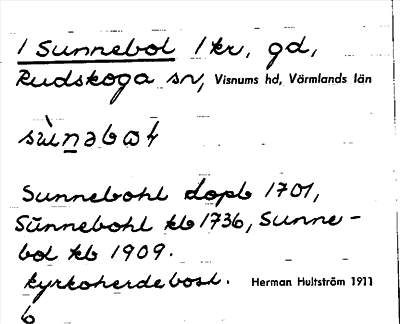 1 Sunnebol 1 kr, gd,
Rudskoga sn, Visnums hd, Värmlands län
sùnəbωɫ
Sunnebohl dopb 1701,
Sūnnebohl kb 1736, Sunne-
bol kb 1909.
kyrkoherdebost. Herman Hultström 1911
b